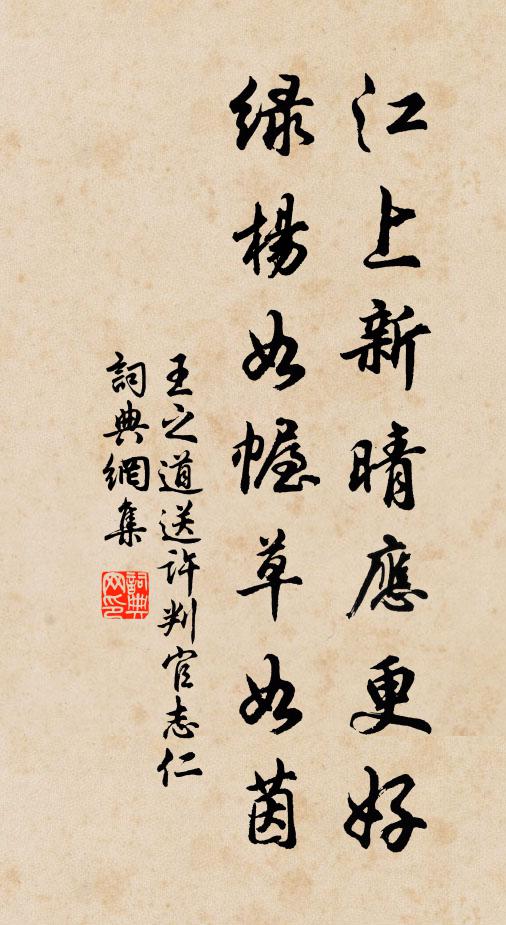 江上新晴應更好
綠楊如幄草如茵
王之道送許判官志仁
詞典網集
詞典
网印